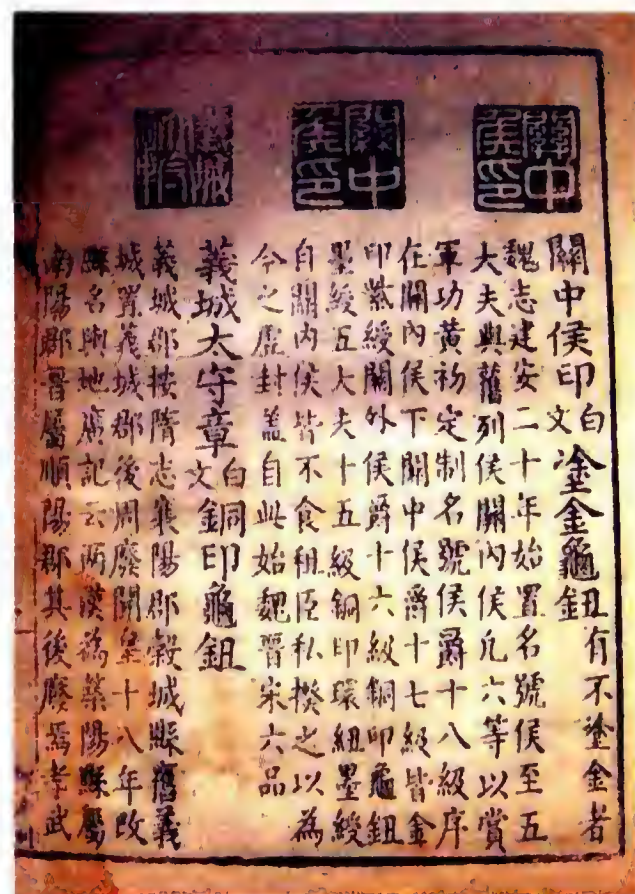 關中侯印
關中侯印
關中侯印白文塗金龜鈕有不塗金者
魏志建安二十年始置名號侯至五
大夫與舊列侯關內侯凡六等以賞
軍功黃初定制名號侯爵十八級序
在關內侯下關中侯爵十七級皆金
印紫綬關外侯爵十六級銅印龜鈕
墨綬五大夫十五級銅印環紐墨綬
自關內侯皆不食租臣私揆之以為
今之虛封蓋自此始魏晉宋六品
義城太守章白文銅印龜鈕
義城郡按隋志襄陽郡穀城縣舊義
城置義城郡後周廢開皇十八年改
縣名輿地廣記云兩漢為築陽縣屬
南陽郡晉屬順陽郡其後廢焉孝武